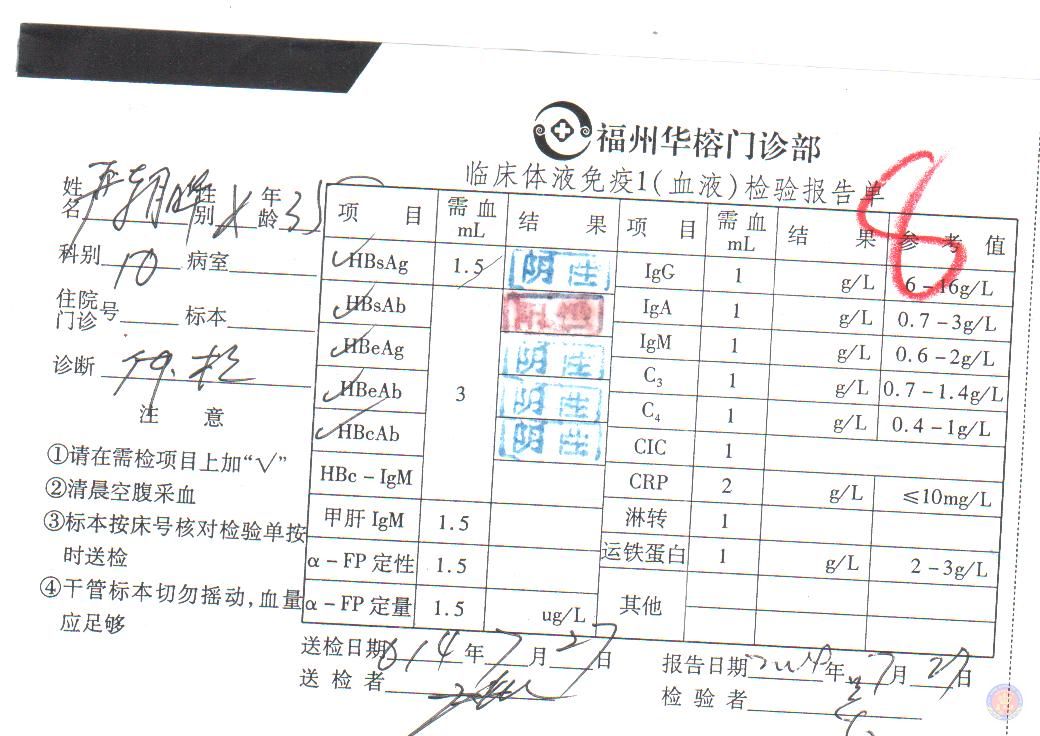 福州华榕门诊部
临床体液免疫1(血液)检验报告单
8
姓名 性别 年龄 35
科别 10 病室
住院门诊号 标本
诊断
注 意
①请在需检项目上加“√”
②清晨空腹采血
③标本按床号核对检验单按时送检
④干管标本切勿摇动,血量应足够
项 目 需血 mL 结 果 项 目 需血 mL 结 果 参考值
HBsAg 1.5 阴性 IgG 1 g/L 6-16g/L
HBsAb 3 IgA 1 g/L 0.7-3g/L
HBeAg 阴性 IgM 1 g/L 0.6-2g/L
HBeAb 阴性 C3 1 g/L 0.7-1.4g/L
HBcAb 阴性 C4 1 g/L 0.4-1g/L
CIC 1
HBc-IgM CRP 2 g/L ≤10mg/L
甲肝IgM 1.5 淋转 1
α-FP定性 1.5 运铁蛋白 1 g/L 2-3g/L
α-FP定量 1.5 ug/L 其他
送检日期 014年7月27日 报告日期 2014年7月27日
送检者 检验者